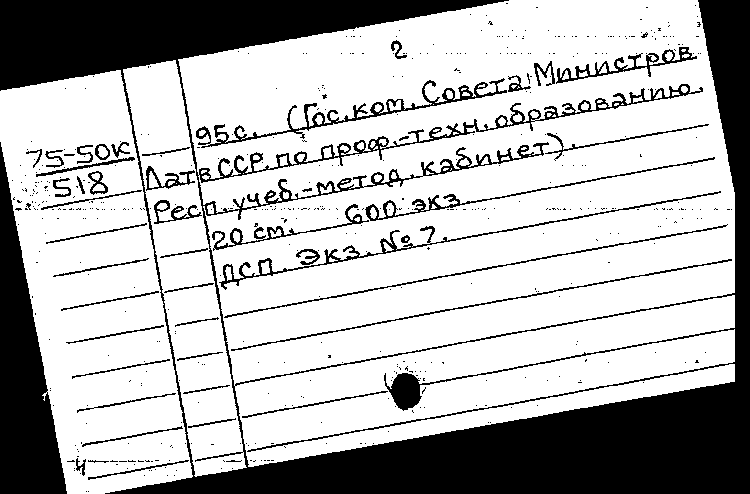 2
75-50к
518
95с. (Гос.ком. Совета Министров
Латв ССР.по проф.-техн.образованию.
Респ.учеб.-метод.кабинет).
20 см. 600 экз
ДСП. Экз. №7.
4